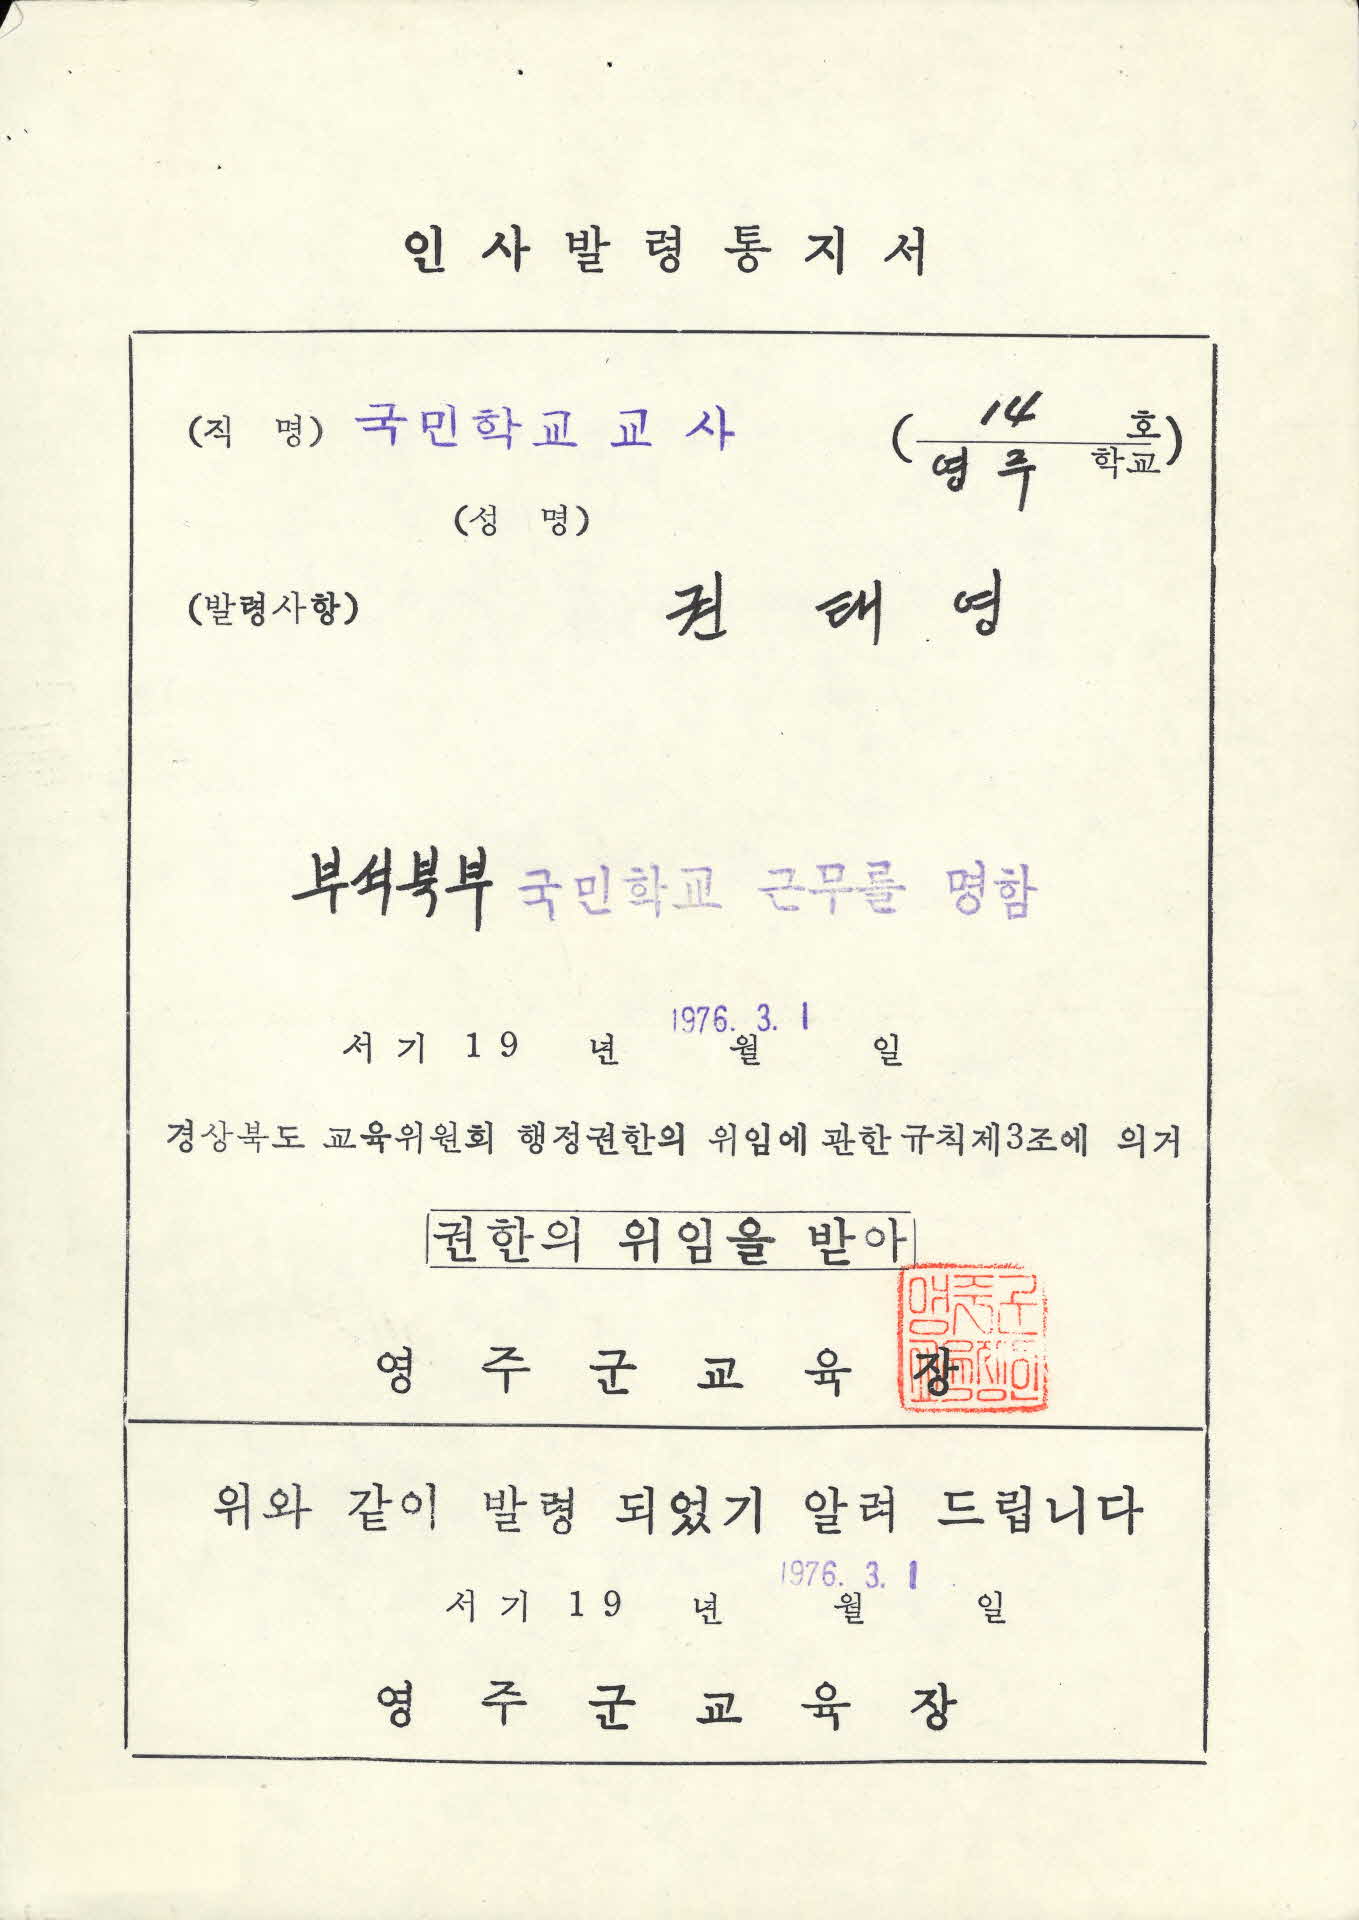 인사발령통지서
(직 명) 국민학교 교 사 ( 14 호
영주 학교 )
(성 명)
(발령사항) 권 태 영
부석북부 국민학교 근무를 명함
1976. 3. 1
서기 19 년 월 일
경상북도 교육위원회 행정권한의 위임에 관한 규칙 제3조에 의거
권한의 위임을 받아
영 주 군 교 육 장
영주군
교육장인
위와 같이 발령 되었기 알려 드립니다
1976. 3. 1
서기 19 년 월 일
영 주 군 교 육 장